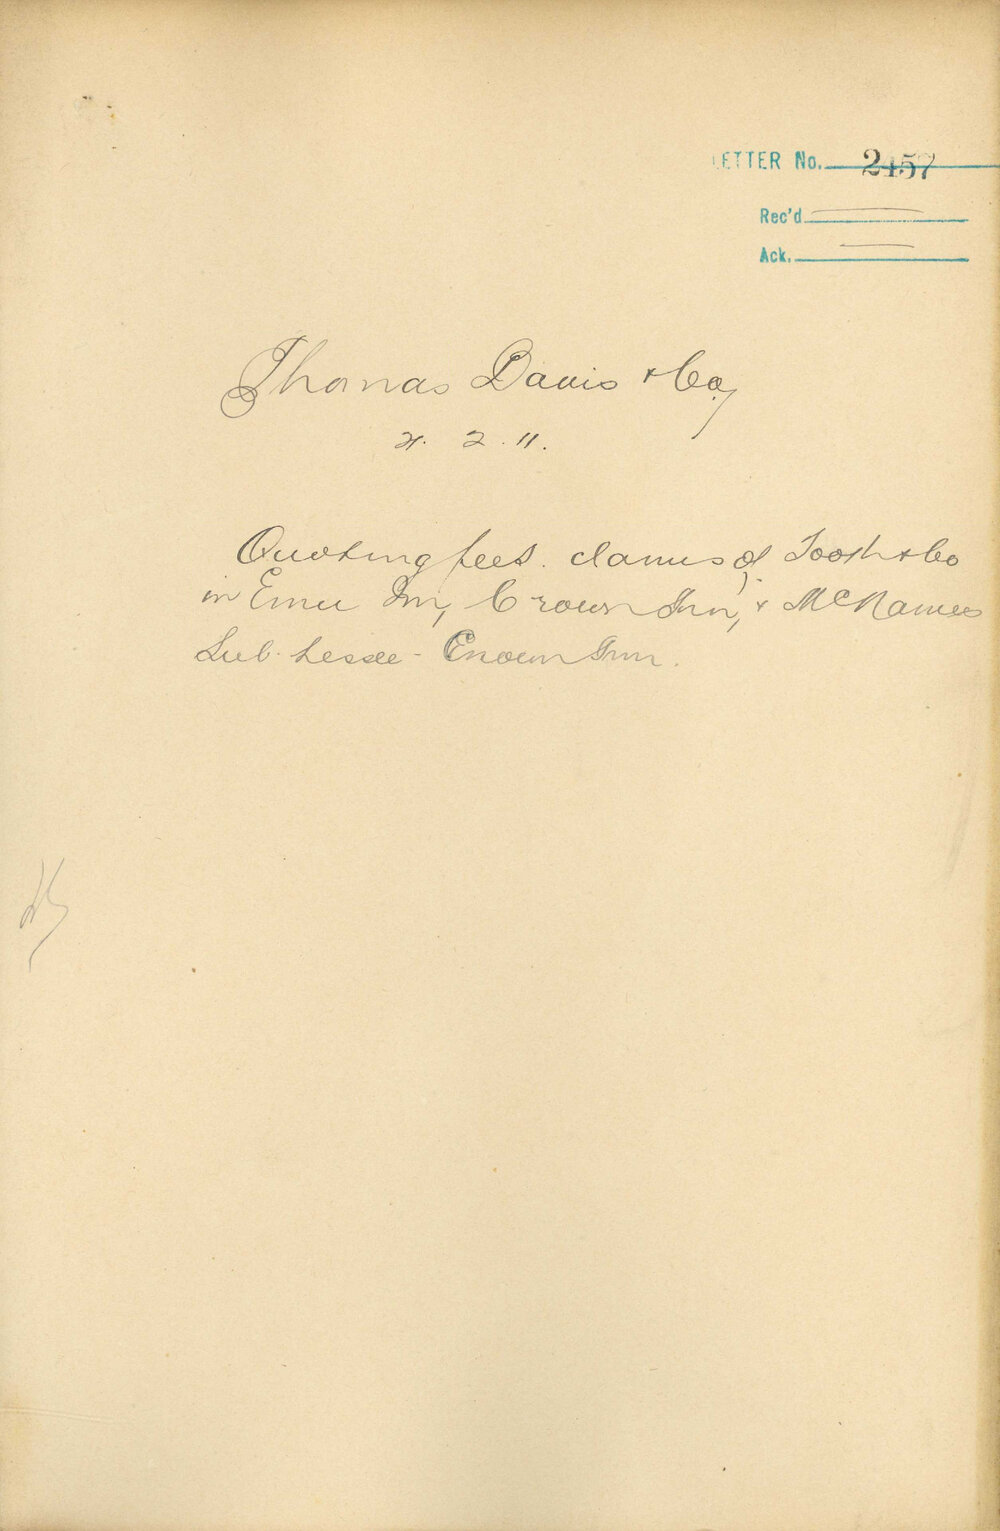 LETTER No. 2457
Rec'd
Ack.
Thomas Davis & Co,
2. 11.
Quoting fees. claims of Tooth & Co
in Emu Inn, Crown Inn, & McNamees
Sub-Lessee - Crown Inn.